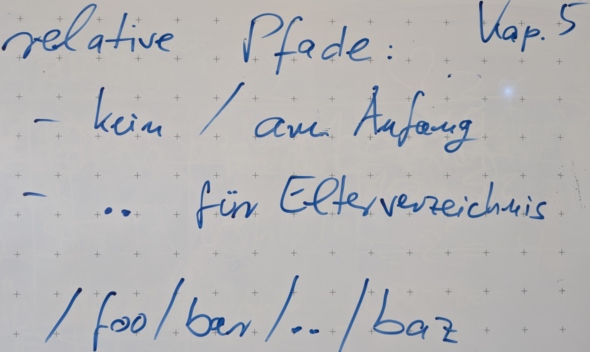 relative Pfade: Kap. 5
- kein / am Anfang
- .. für Elterverzeichnis
/foo/bar/../baz